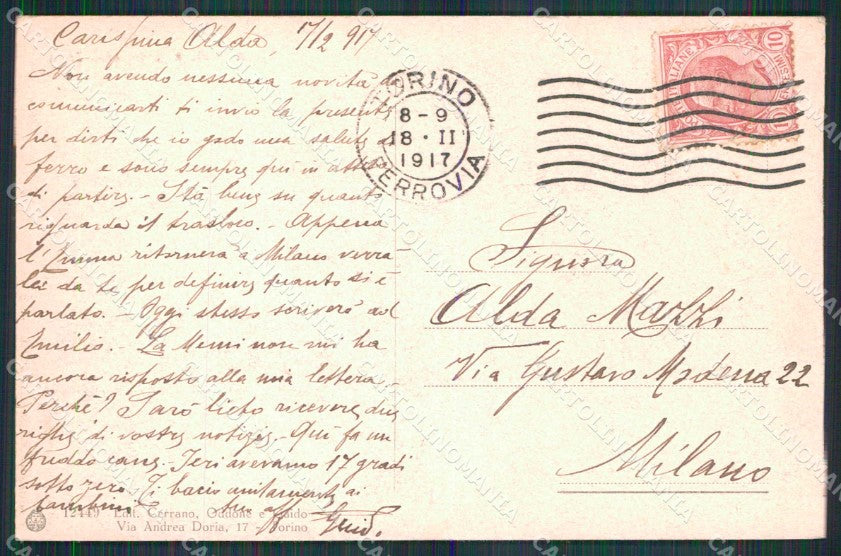 Carissima Alda, 17/2 917
Non avendo nessuna novità
comunicarti ti invio la presente
per dirti che io godo una salute di
ferro e sono sempre qui in attesa
di partire. - Stà bene su quanto
riguarda il trasloco. - Appena
l'Emma ritornerà a Milano verrà
lei da te per definire quanto si è
parlato. - Oggi stesso scriverò ad
Emilio. - La Memi non mi ha
ancora risposto alla mia lettera -
Perché? Sarò lieto ricevere due
righe di vostre notizie. - Qui fa un
freddo cane. Ieri avevamo 17 gradi
sotto zero. Ti bacio unitamente ai
bambini
TORINO
8-9
18·II
1917
FERROVIA
10
Signora
Alda Mazzi
Via Gustavo Modena 22
Milano
12449 Edit. Cerrano, Oddone e Guido
Via Andrea Doria, 17 - Torino
CARTOLINOMANIA